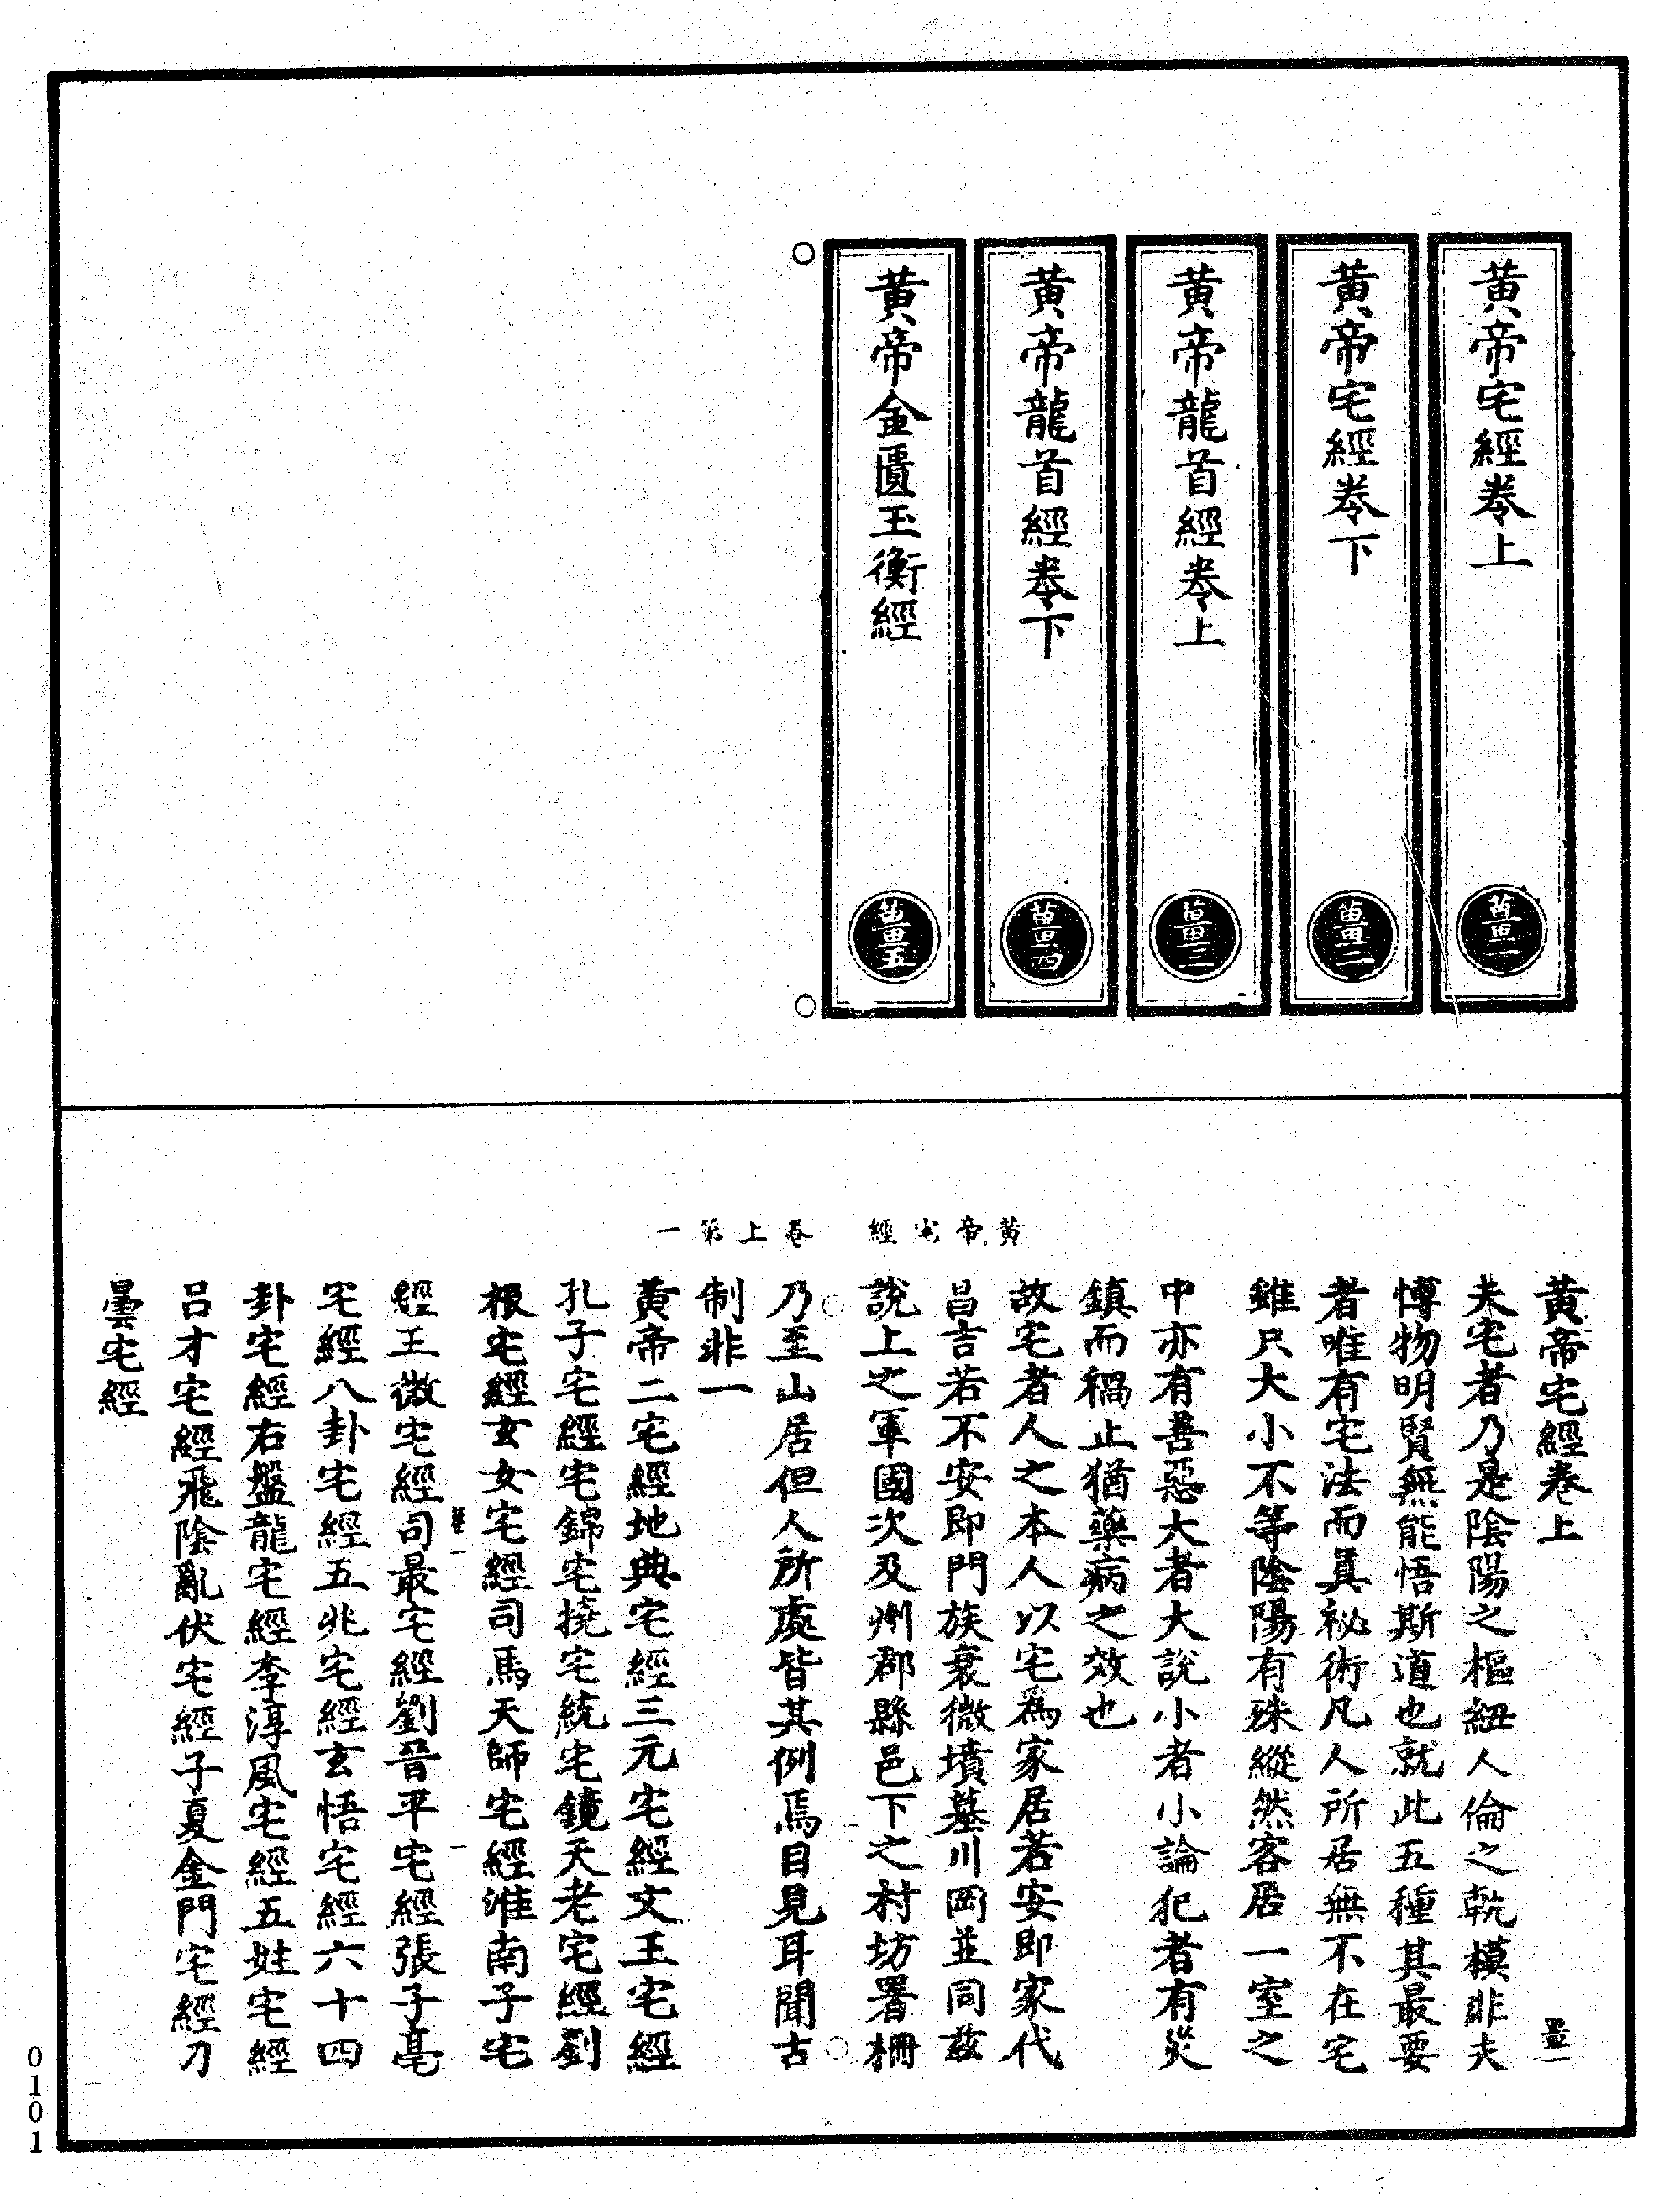 黃帝宅經卷上
薑一
黃帝宅經卷下
薑二
黃帝龍首經卷上
薑三
黃帝龍首經卷下
薑四
黃帝金匱玉衡經
薑五
黃帝宅經 卷上第一
黃帝宅經卷上 薑一
夫宅者乃是陰陽之樞紐人倫之軌模非夫
愽物明賢無能悟斯道也就此五種其最要
者唯有宅法而真祕術凡人所居無不在宅
雖只大小不等陰陽有殊縱然客居一室之
中亦有善惡大者大說小者小論犯者有災
鎮而禍止猶藥病之效也
故宅者人之本人以宅為家居若安即家代
昌吉若不安即門族衰微墳墓川岡並同茲
說上之軍國次及州郡縣邑下之村坊署柵
乃至山居但人所處皆其例焉目見耳聞古
制非一
黃帝二宅經地典宅經三元宅經文王宅經
孔子宅經宅錦宅撓宅統宅鏡天老宅經劉
根宅經玄女宅經司馬天師宅經淮南子宅
薑一 一
經王微宅經司最宅經劉晉平宅經張子毫
宅經八卦宅經五兆宅經玄悟宅經六十四
卦宅經右盤龍宅經李淳風宅經五姓宅經
呂才宅經飛陰亂伏宅經子夏金門宅經刀
曇宅經
0101